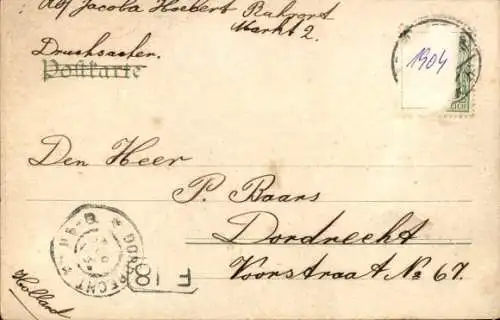 Abf Jacoba Hoebert Ruhrort
Markt 2.
Drucksachen.
Postkarte
1904
Den Heer
P. Baars
Dordrecht
Voorstraat No 67.
DORDRECHT
Holland